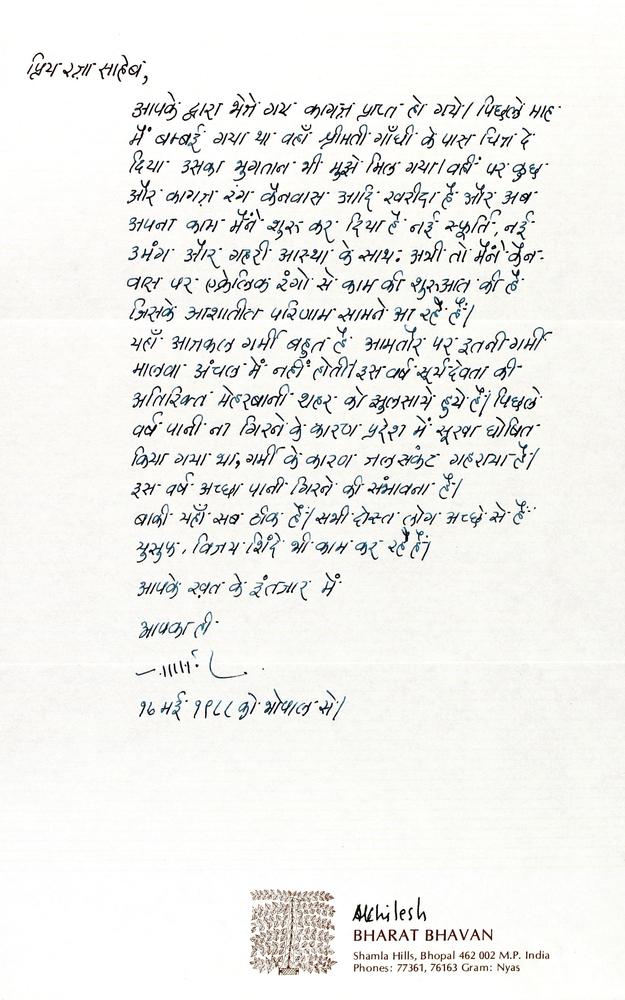 प्रिय रज़ा साहेब,
आपके द्वारा भेजे गये कागज़ प्राप्त हो गये। पिछले माह
मैं बम्बई गया था वहाँ श्रीमती गाँधी के पास चित्र दे
दिया उसका भुगतान भी मुझे मिल गया। वहीं पर कुछ
और कागज़ रंग कैनवास आदि खरीदा है और अब
अपना काम मैंने शुरू कर दिया है नई स्फूर्ति, नई
उमंग और गहरी आस्था के साथ. अभी तो मैंने कैन-
वास पर एक्रेलिक रंगो से काम की शुरुआत की है
जिसके आशातीत परिणाम सामने आ रहे हैं।
यहाँ आजकल गर्मी बहुत है आमतौर पर इतनी गर्मी
मालवा अंचल में नहीं होती। इस वर्ष सूर्यदेवता की
अतिरिक्त मेहरबानी शहर को झुलसाये हुये है। पिछले
वर्ष पानी ना गिरने के कारण प्रदेश में सूखा घोषित
किया गया था, गर्मी के कारण जलसंकट गहराया है।
इस वर्ष अच्छा पानी गिरने की संभावना है।
बाकी यहाँ सब ठीक है। सभी दोस्त लोग अच्छे से हैं
युसुफ, विजय शिंदे भी काम कर रहे हैं।
आपके ख़त के इंतजार में
आपका ही
१६ मई १९८८ को भोपाल से।
Akhilesh
BHARAT BHAVAN
Shamla Hills, Bhopal 462 002 M.P. India
Phones: 77361, 76163 Gram: Nyas